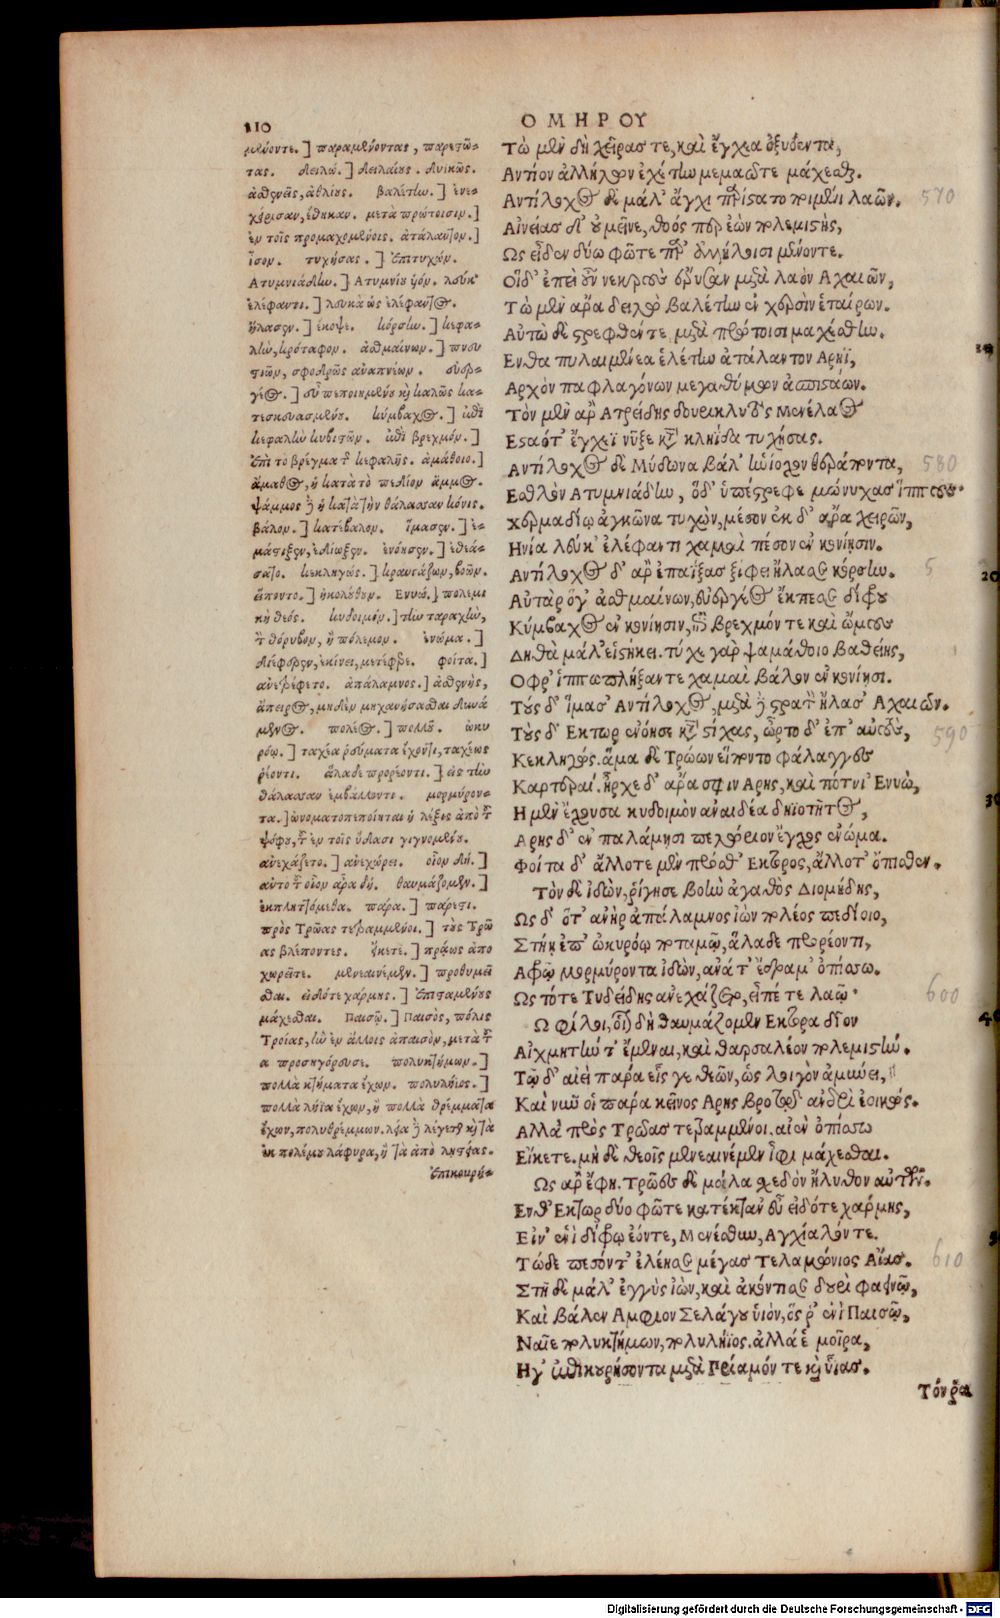 110
ΟΜΗΡΟΥ
μένοντε.] παραμένοντας, παρεστῶ-
τας. δειλώ.] δειλαίους. δυικῶς.
ἀσθενεῖς, ἀθλίους. βαλέτην.] ἐνε-
χείρισαν, ἔθηκαν. μετὰ πρώτοισιν.]
ἐν τοῖς προμαχομένοις. ἀτάλαντον.]
ἴσον. τυχήσας.] ἐπιτυχών.
Ατυμνιάδην.] Ατυμνίου υἱόν. λεύκ'
ἐλέφαντι.] λευκὰ ὡς ἐλέφαντος.
ἤλασεν.] ἔκοψε. κόρσην.] κεφα-
λὴν, κρόταφον. ἀσθμαίνων.] πνευ
στιῶν, σφοδρῶς ἀναπνέων. εὐερ-
γέος.] εὖ πεποιημένου καὶ καλῶς κα-
τεσκευασμένου. κύμβαχος.] ἐπὶ
κεφαλὴν κυβιστῶν. ἐπὶ βρεχμόν.]
ἐπὶ τὸ βρέγμα τῆς κεφαλῆς. ἀμάθοιο.]
ἄμαθος, ἡ κατὰ τὸ πεδίον ἄμμος.
ψάμμος δὲ ἡ κατὰ τὴν θάλασσαν κόνις.
βάλον.] κατέβαλον. ἵμασεν.] ἐ-
μάστιξεν, ἐδίωξεν. ἐνόησεν.] ἐθεά-
σατο. κεκληγώς.] κραυγάζων, βοῶν.
εἵποντο.] ἠκολούθουν. Ενυώ.] πολεμι
κὴ θεός. κυδοιμόν.] τὴν ταραχὴν,
τὸν θόρυβον, ἢ πόλεμον. ἐνώμα.]
διέφερεν, ἐκίνει, μετέφερε. φοίτα.]
ἀνεστρέφετο. ἀπάλαμνος.] ἀσθενὴς,
ἄπειρος, μηδὲν μηχανήσασθαι δυνά
μενος. πολέος.] πολλοῦ. ὠκυ
ρόῳ.] ταχέα ῥεύματα ἔχοντι, ταχέως
ῥέοντι. ἅλαδε προρέοντι.] εἰς τὴν
θάλασσαν ἐμβάλλοντι. μορμύρον-
τα.] ὠνοματοπεποίηται ἡ λέξις ἀπὸ τοῦ
ψόφου, τοῦ ἐν τοῖς ὕδασι γιγνομένου.
ἀνεχάζετο.] ἀνεχώρει. οἷον δή.]
αὐτὸ τὸ οἷον ἄρα δή. θαυμάζομεν.]
ἐκπληττόμεθα. πάρα.] πάρεστι.
πρὸς Τρῶας τετραμμένοι.] τοὺς Τρῶ
ας βλέποντες. εἴκετε.] πρᾴως ἀπο
χωρεῖτε. μενεαινέμεν.] προθυμεῖ
σθαι. εἰδότε χάρμης.] ἐπισταμένους
μάχεσθαι. Παισῷ.] Παισὸς, πόλις
Τροίας, ἣν ἐν ἄλλοις ἀπαισὸν, μετὰ τοῦ
α προσηγόρευσε. πολυκτήμων.]
πολλὰ κτήματα ἔχων. πολυλήιος.]
πολλὰ λήϊα ἔχων, ἢ πολλὰ θρέμματα
ἔχων, πολυθρέμμων. λεία δὲ λέγεται καὶ τὰ
ἐκ πολέμου λάφυρα, ἢ τὰ ἀπὸ λῃστείας.
ἐπικουρή-
Τὼ μὲν δὴ χεῖρας τε, καὶ ἔγχεα ὀξυόεντα,
Αντίον ἀλλήλων ἐχέτην μεμαῶτε μάχεσθαι.
Αντίλοχος δὲ μάλ' ἄγχι παρίστατο ποιμένι λαῶν. 570
Αἰνείας δ' οὐ μεῖνε, θοός περ ἐὼν πολεμιστὴς,
Ως εἶδεν δύω φῶτε παρ' ἀλλήλοισι μένοντε.
Οἵδ' ἐπεὶ οὖν νεκροὺς ἔρυσαν μετὰ λαὸν Αχαιῶν,
Τὼ μὲν ἄρα δειλὼ βαλέτην ἐν χερσὶν ἑταίρων.
Αὐτὼ δὲ στρεφθέντε μετὰ πρώτοισι μαχέσθην.
Ενθα πυλαιμένεα ἑλέτην ἀτάλαντον Αρηϊ,
Αρχὸν παφλαγόνων μεγαθύμων ἀσπιστάων.
Τὸν μὲν ἄρ' Ατρείδης δουρικλυτὸς Μενέλαος
Εσταότ' ἔγχεϊ νῦξε κατὰ κληῗδα τυχήσας.
Αντίλοχος δὲ Μύδωνα βάλ' ἡνίοχον θεράποντα, 580
Εσθλὸν Ατυμνιάδην, ὅδ' ὑπέστρεφε μώνυχας ἵππους·
χερμαδίῳ ἀγκῶνα τυχὼν, μέσον ἐκ δ' ἄρα χειρῶν,
Ηνία λεύκ' ἐλέφαντι χαμαὶ πέσον ἐν κονίῃσιν.
Αντίλοχος δ' ἄρ' ἐπαΐξας ξίφει ἤλασε κόρσην. 5
Αὐτὰρ ὅγ' ἀσθμαίνων, εὐεργέος ἔκπεσε δίφρου
Κύμβαχος ἐν κονίῃσιν, ἐπὶ βρεχμόν τε καὶ ὤμους
Δηθὰ μάλ' εἱστήκει. τύχε γάρ ψαμάθοιο βαθείης,
Οφρ' ἵππω πλήξαντε χαμαὶ βάλον ἐν κονίῃσι.
Τοὺς δ' ἵμασ' Αντίλοχος, μετὰ δὲ στρατὸν ἤλασ' Αχαιῶν.
Τοὺς δ' Εκτωρ ἐνόησε κατὰ στίχας, ὦρτο δ' ἐπ' αὐτοὺς, 590
Κεκληγώς. ἅμα δὲ Τρώων εἵποντο φάλαγγες
Καρτεραί. ἦρχε δ' ἄρα σφιν Αρης, καὶ πότνι' Ενυὼ,
Η μὲν ἔχουσα κυδοιμὸν ἀναιδέα δηϊοτῆτος,
Αρης δ' ἐν παλάμῃσι πελώριον ἔγχος ἐνώμα.
Φοίτα δ' ἄλλοτε μὲν πρόσθ' Εκτορος, ἄλλοτ' ὄπισθεν.
Τὸν δὲ ἰδὼν, ῥίγησε βοὴν ἀγαθὸς Διομήδης,
Ως δ' ὅτ' ἀνὴρ ἀπάλαμνος ἰὼν πολέος πεδίοιο,
Στήῃ ἐπ' ὠκυρόῳ ποταμῷ, ἅλαδε προρέοντι,
Αφρῷ μορμύροντα ἰδὼν, ἀνά τ' ἔδραμ' ὀπίσσω.
Ως τότε Τυδείδης ἀνεχάζετο, εἶπέ τε λαῷ· 600
Ω φίλοι, οἷον δὴ θαυμάζομεν Εκτορα δῖον
Αἰχμητήν τ' ἔμεναι, καὶ θαρσαλέον πολεμιστήν.
Τῷ δ' αἰεὶ πάρα εἷς γε θεῶν, ὡς λοιγὸν ἀμύνει,
Καὶ νῦν οἱ πάρα κεῖνος Αρης βροτῷ ἀνδρὶ ἐοικώς.
Αλλὰ πρὸς Τρῶας τετραμμένοι. αἰὲν ὀπίσσω
Εἴκετε. μὴ δὲ θεοῖς μενεαινέμεν ἶφι μάχεσθαι.
Ως ἄρ' ἔφη. Τρῶες δὲ μάλα σχεδὸν ἤλυθον αὐτῶν.
Ενθ' Εκτωρ δύο φῶτε κατέκταν' εὖ εἰδότε χάρμης,
Εἰν' ἑνὶ δίφρῳ ἐόντε, Μενέσθην, Αγχίαλόν τε.
Τώδε πεσόντ' ἐλέησε μέγας Τελαμώνιος Αἴας. 610
Στῆ δὲ μάλ' ἐγγὺς ἰὼν, καὶ ἀκόντισε δουρὶ φαεινῷ,
Καὶ βάλεν Αμφιον Σελάγου ὑιὸν, ὅς ῥ' ἐνὶ Παισῷ,
Ναῖε πολυκτήμων, πολυλήϊος. ἀλλά ἑ μοῖρα,
Ηγ' ἐπικουρήσοντα μετὰ Πρίαμόν τε καὶ ὑῖας.
Τόν ῥα
Digitalisierung gefördert durch die Deutsche Forschungsgemeinschaft - DFG